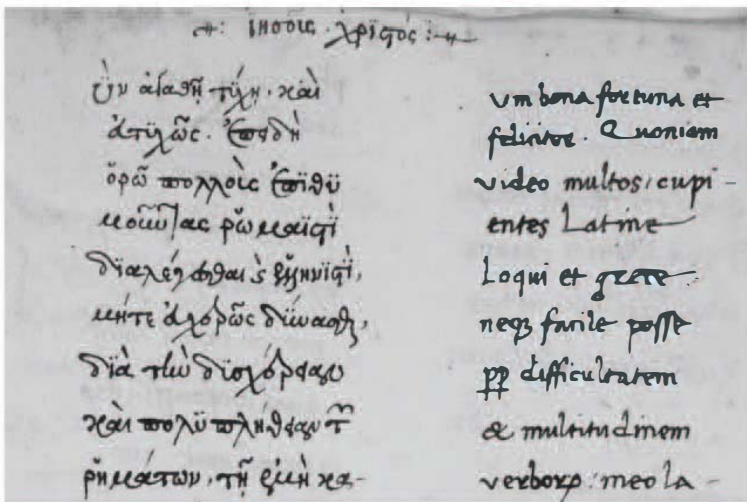 ἰησοῦς · χριστός
ὺν ἀγαθῆ τύχη. καὶ
ἀτυχῶς. ἐπειδὴ
ὁρῶ πολλοὶς ἐπϊθϋ
μοῦντας ῥωμαϊστὶ
δϊαλέγεσθαι ϗ ἑλληνιστὶ,
μήτε ἀχορῶς δύνασθαι,
δϊὰ τὴν δϊσχόρειαν
καὶ πολϋπλήθειαν τ῀
ῥημάτων, τῆ ἐμὴ κα-
um bona fortuna et
feliciter. Quoniam
video multos cupi-
entes Latine
Loqui et grece
neqꝫ facile posse
ꝓp difficultatem
& multitudinem
verborꝝ: meo la-